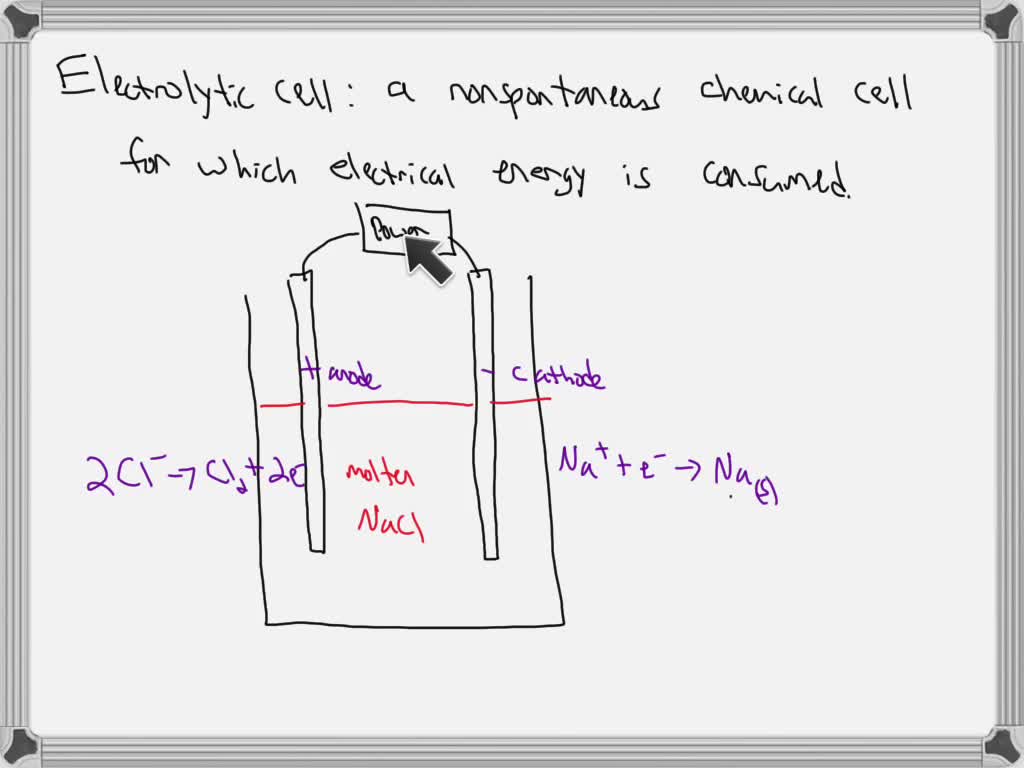 Electrolytic cell: a nonspontaneous chemical cell
for which electrical energy is consumed.
Power
+ anode
- cathode
2Cl⁻ → Cl₂ + 2e⁻
molten
NaCl
Na⁺ + e⁻ → Na(s)